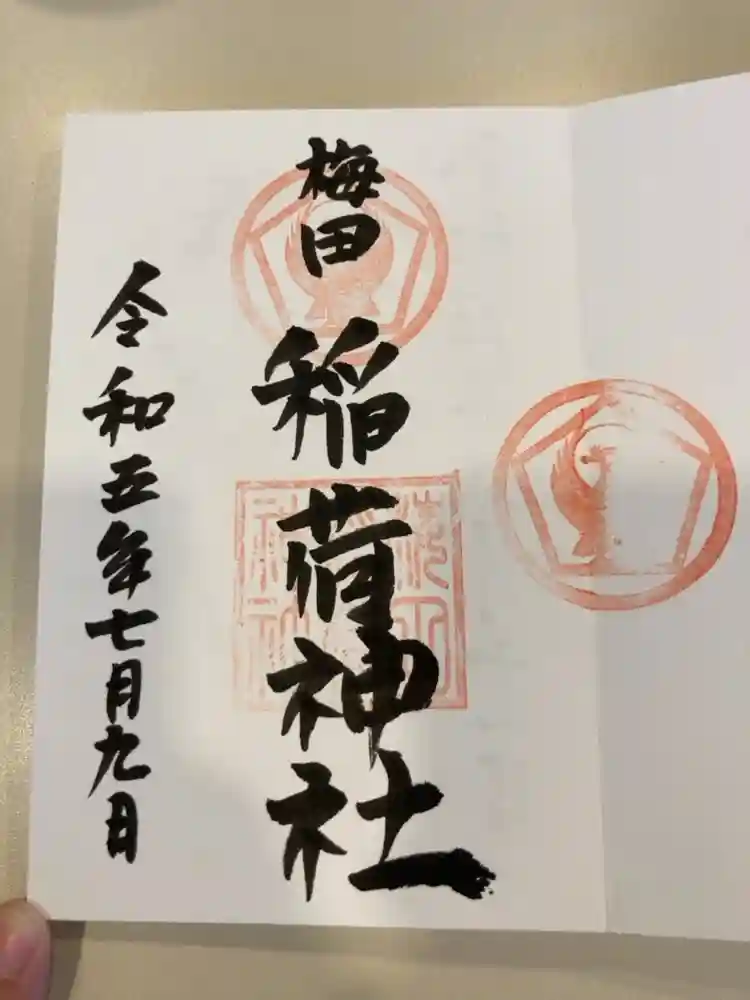 梅田
稲荷神社
令和五年七月九日